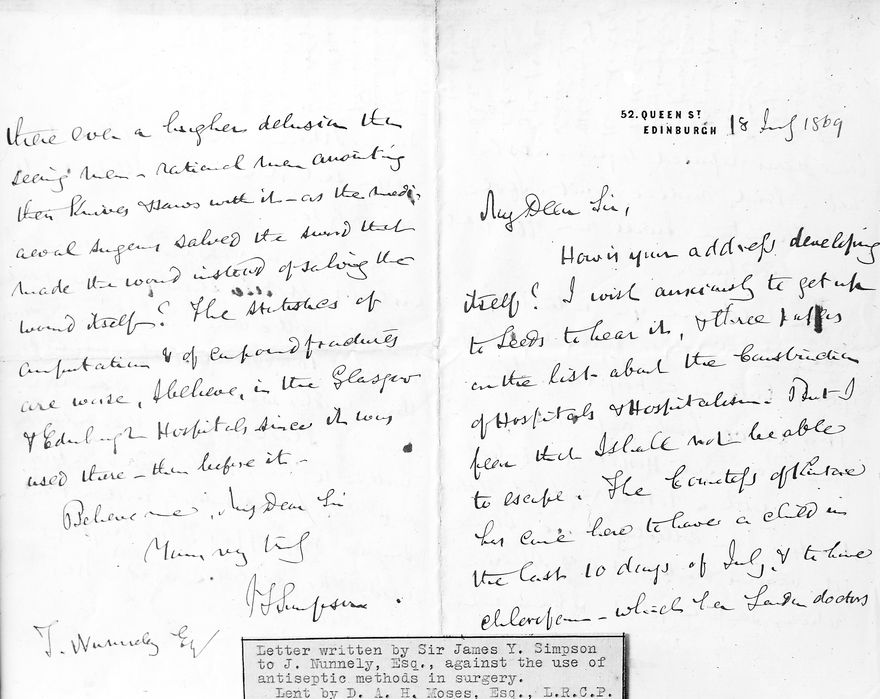 52. QUEEN ST.
EDINBURGH 18 July 1869
My Dear Sir,
How is your address developing
itself? I wish anxiously to get up
to Leeds to hear it, & three papers
on the list about the Construction
of Hospitals & Hospitalism. But I
fear that I shall not be able
to escape. The Countess of Kintore
has come here to have a child in
the last 10 days of July, & to have
chloroform – which her London doctors
there ever a higher delusion than
seeing men – rational men anointing
their Knives & Saws with it – as the medi-
aeval surgeons salved the sword that
made the wound instead of salving the
wound itself? The statistics of
amputations & of compound fractures
are worse, I believe, in the Glasgow
& Edinburgh Hospitals since it was
used there – than before it –
Believe me, My Dear Sir
Yours very truly
JYSimpson.
T. Nunneley Esq
Letter written by Sir James Y. Simpson
to J. Nunnely, Esq., against the use of
antiseptic methods in surgery.
Lent by D. A. H. Moses, Esq., L.R.C.P.